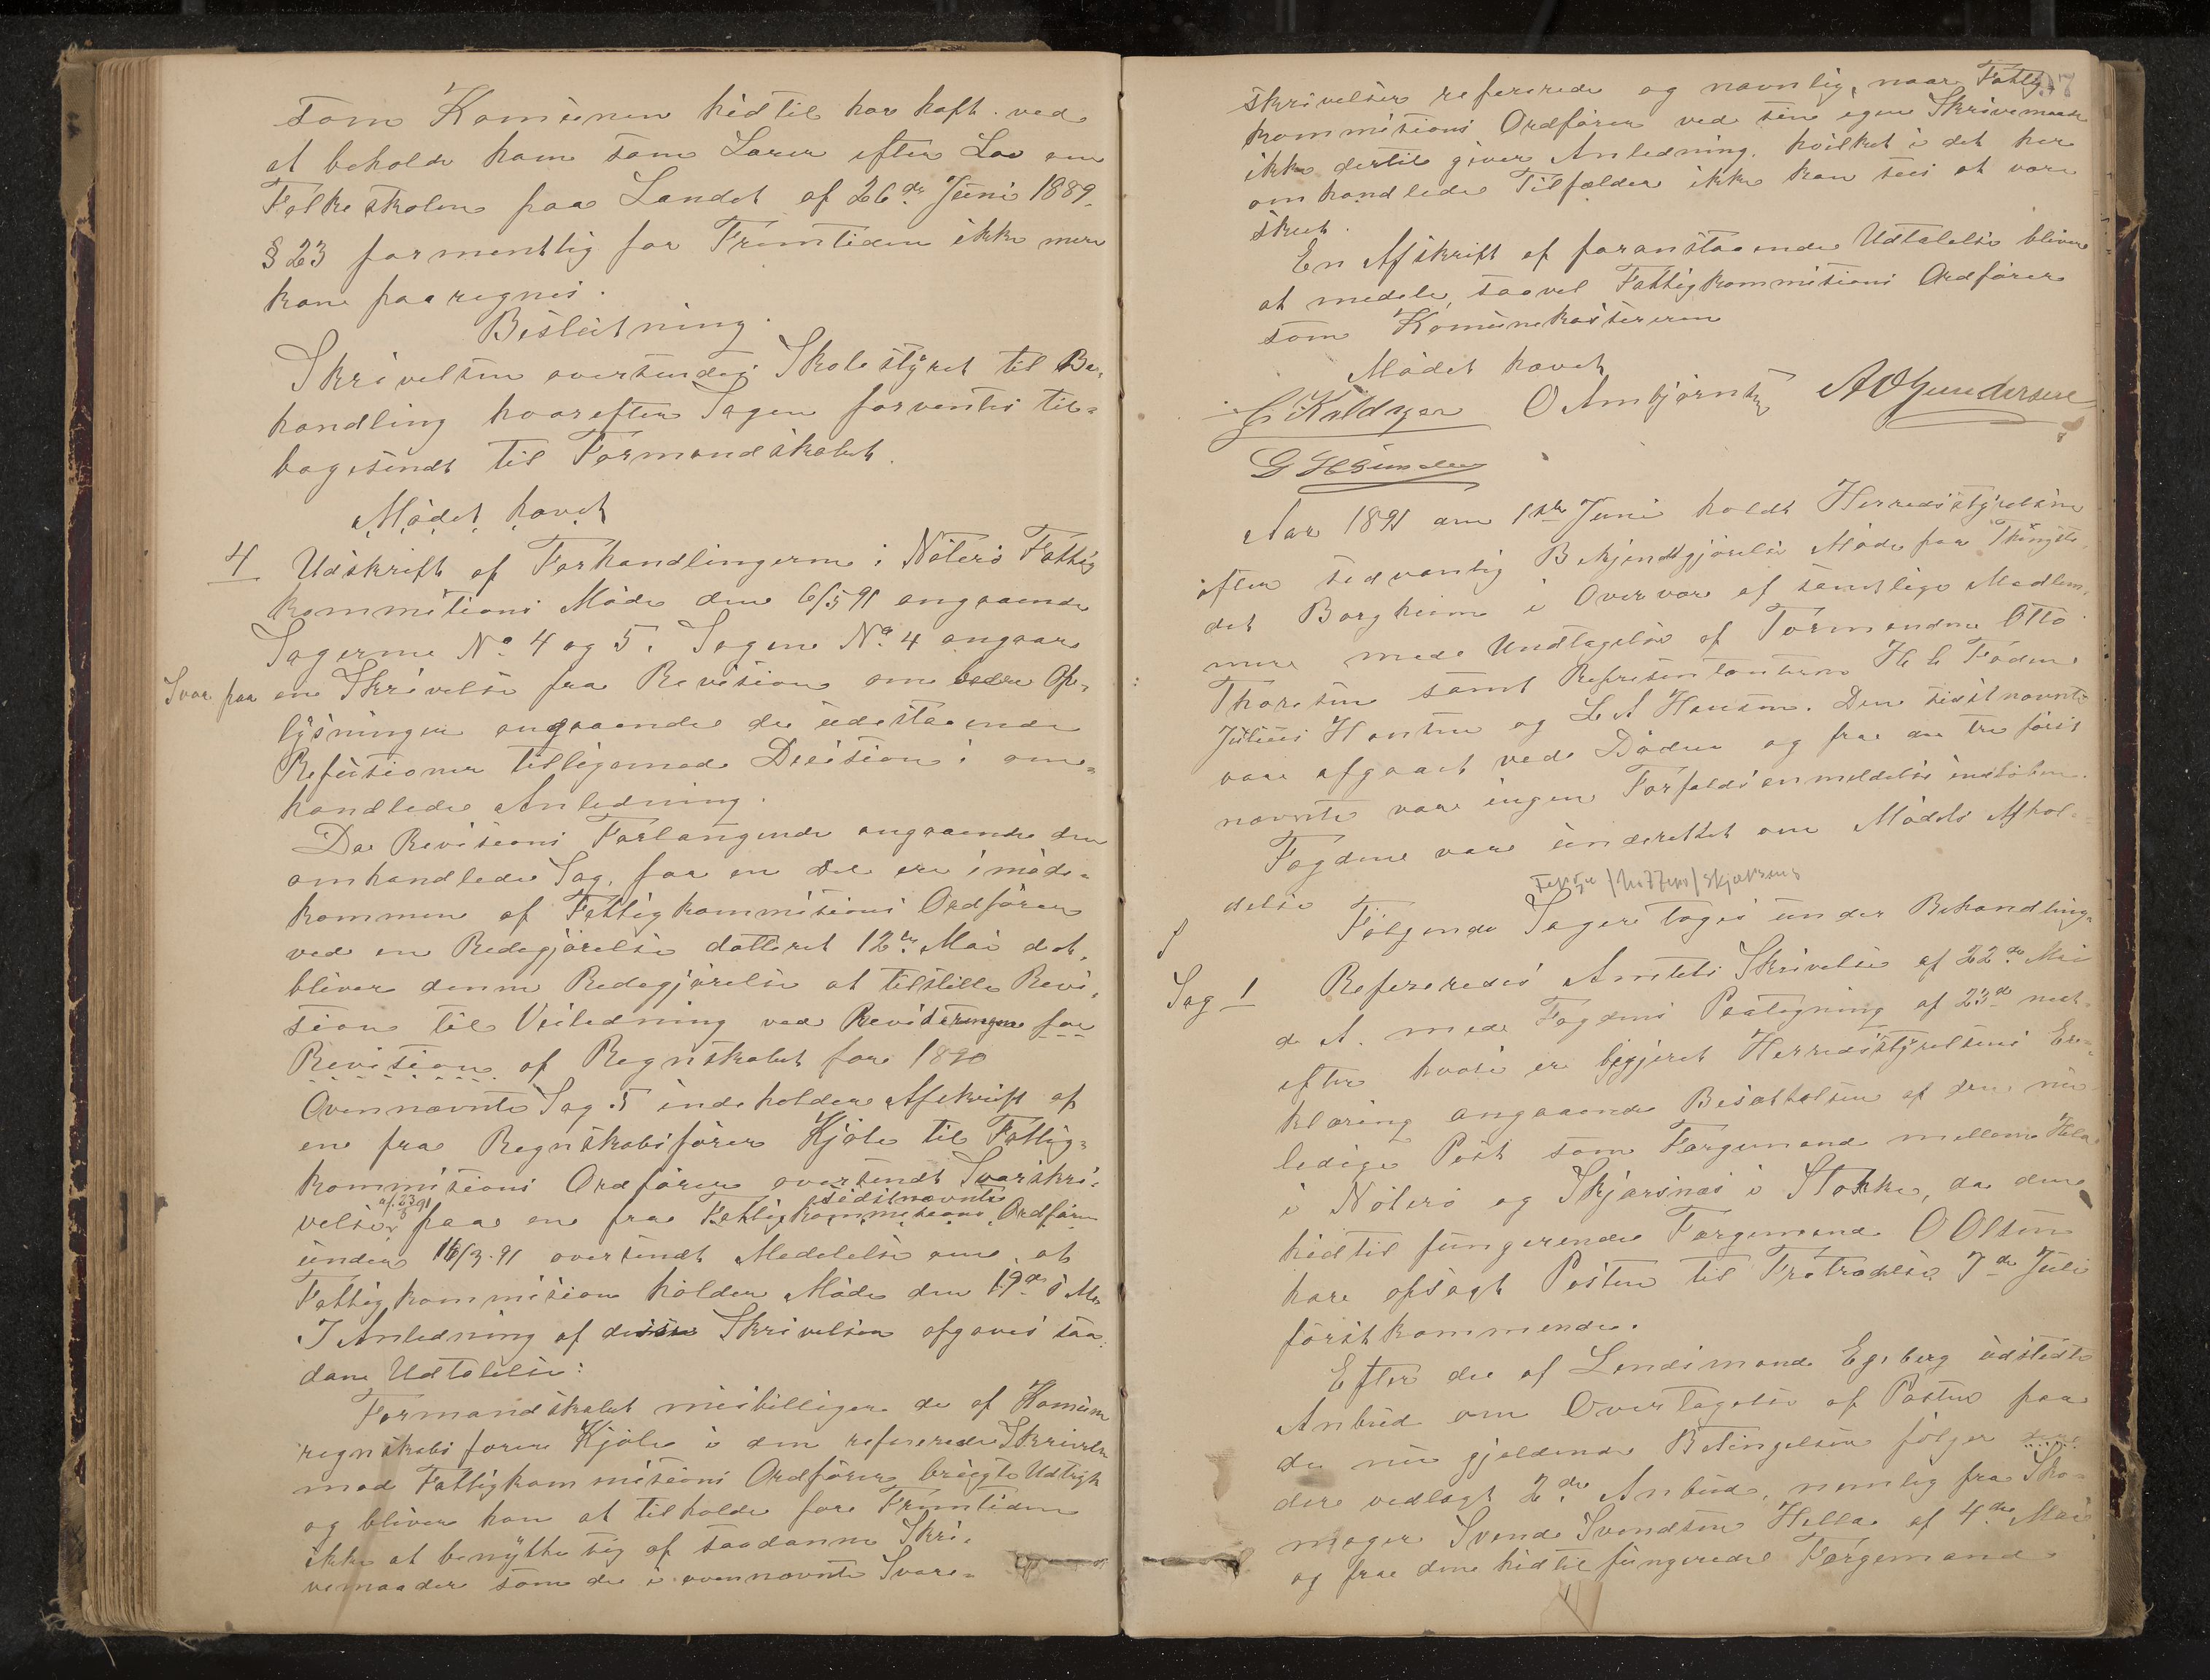 som Komunen hidtil har haft ved
at beholde ham som Lærer efter Lov om
Folkeskolen paa Landet af 26de Juni 1889
§ 23 formentlig for Fremtiden ikke mere
kan paaregnes.
Beslutning.
Skrivelsen oversendes Skolestyret til Be-
handling hvorefter Sagen forventes til-
bagesendt til Formandskabet.
Mødet hævet
4 Udskrift af Forhandlingerne i Nøterø Fattig
kommissions Møde den 6/5 91 angaaende
Sagerne No 4 og 5. Sagen No 4 angaar
Svar paa en Skrivelse fra Revision om Op-
lysninger angaaende de udestaaende
Refusioner tilligemed Decision i om-
handlede Anledning.
Da Revisions Forlangende angaaende den
omhandlede Sag, for en Del er imøde-
kommen af Fattigkommissions Ordfører
ved en Redegjørelse datteret 12te Mai d.A.
bliver denne Redegjørelse at tilstille Revi-
sion til Veiledning ved Revideringen for
Revision af Regnskabet for 1890
Ovennævnte Sag 5 indeholder Afskrift af
en fra Regnskabsfører Kjøle til Fattig-
kommissions Ordfører oversendt Svarskri-
velse af 23/3 91 paa en fra sidstnævnte Fattigkommissions Ordfører
under 16/3 91 oversendt Meddelelse om at
Fattigkommission holder Møde den 19de s. M.
I Anledning af disse Skrivelser afgaves saa-
dan Udtalelse:
Formandskabet misbilliger de af Komune
regnskabsfører Kjøle i den refererede Skrivelse
mod Fattigkommissions Ordfører brugte Udtryk
og bliver han at tilholde for Fremtiden
ikke at benytte sig af saadanne Skri-
vemaader som de i ovennævnte Svar-
skrivelser refererede og navnlig, naar Fattig-
kommissions Ordfører ved sin egen Skrivemaade
ikke dertil giver Anledning, hvilket i det her
omhandlede Tilfælde ikke kan sees at være
skeet.
En Afskrift af foranstaaende Udtalelse bliver
at meddele, saavel Fattigkommissions Ordfører
som Komunekassereren
Mødet hævet
O Ambjørnsen A O Gundersen
Aar 1891 den 1ste Juni holdt Herredsstyrelsen
efter sedvanlig Bekjendtgjørelse Møde paa Thingste-
det Borgheim i Overvær af samtlige Medlem-
mer med Undtagelse af Formændene Otto
Thoresen samt Repræsentanterne H. C. Foden
Julius Hansen og L A Hansen. Den sidstnævnte
var afgaaet ved Døden og fra de tre først
nævnte var ingen Forfaldsanmeldelse indløben.
Fogden var underrettet om Mødets Afhol-
delse
Følgende Sager toges under Behandling.
Sag 1 Refereredes Amtets Skrivelse af 22de Mai
d. A. med Fogdens Paategning af 23de næst-
efter hvori er begjæret Herredsstyrelsens Er-
klæring angaaende Besættelsen af den nu
ledige Post som Færgemand mellem Hella
i Nøterø og Skjærsnæs i Stokke, da den
hidtil fungerende Færgemand O Olsen
har opsagt Posten til Fratrædelse 7de Juli
førstkommende.
Efter det af Lensmand Egeberg udstedte
Anbud om Overtagelse af Posten paa
de nu gjældende Betingelser følger
der vedlagt 2de Anbud, nemlig fra Sko-
mager Svend Svendsen Hella af 4de Mai
og fra den hidtil fungerede Færgemand